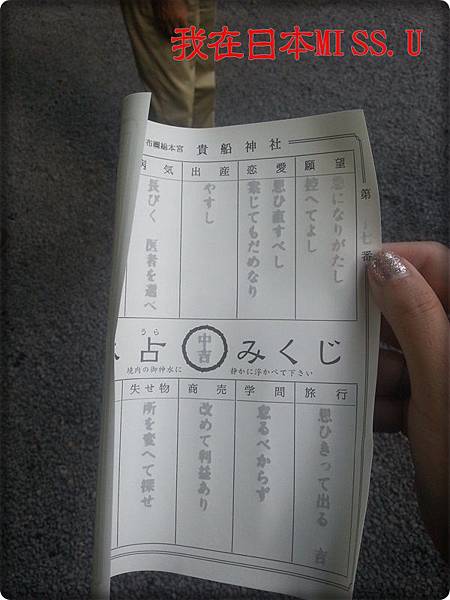 我在日本MISS.U
貴船神社
第
七番
願望
急になりがたし
控へてよし
恋愛
思ひ直すべし
案じてもだめなり
出産
やすし
病気
長びく 医者を選べ
占みくじ
うら
中吉
境内の御神水に
静かに浮かべて下さい
旅行
思ひきって出る 吉
学問
怠るべからず
商売
改めて利益あり
失せ物
所を変へて探せ